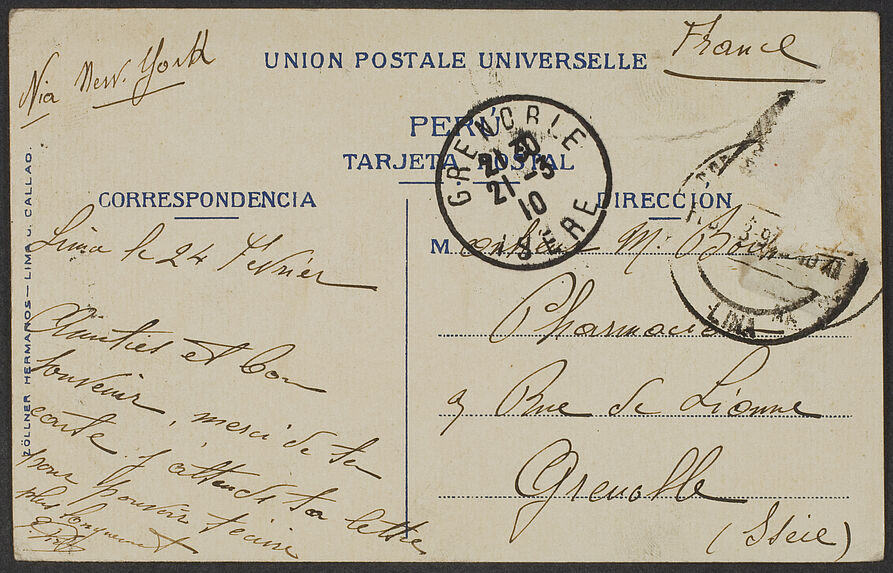 Via New-York
France
UNION POSTALE UNIVERSELLE
PERÚ
TARJETA POSTAL
CORRESPONDENCIA
DIRECCION
GRENOBLE
21 30
21-3
10
ISERE
LIMA
Lima le 24 Février
Amitiés et bon
souvenir, merci de ta
carte j'attends ta lettre
pour pouvoir t'écrire
plus longuement
M
Pharmacie
9 Rue de Lionne
Grenoble
(Isère)
ZÖLLNER HERMANOS — LIMA U. CALLAO.